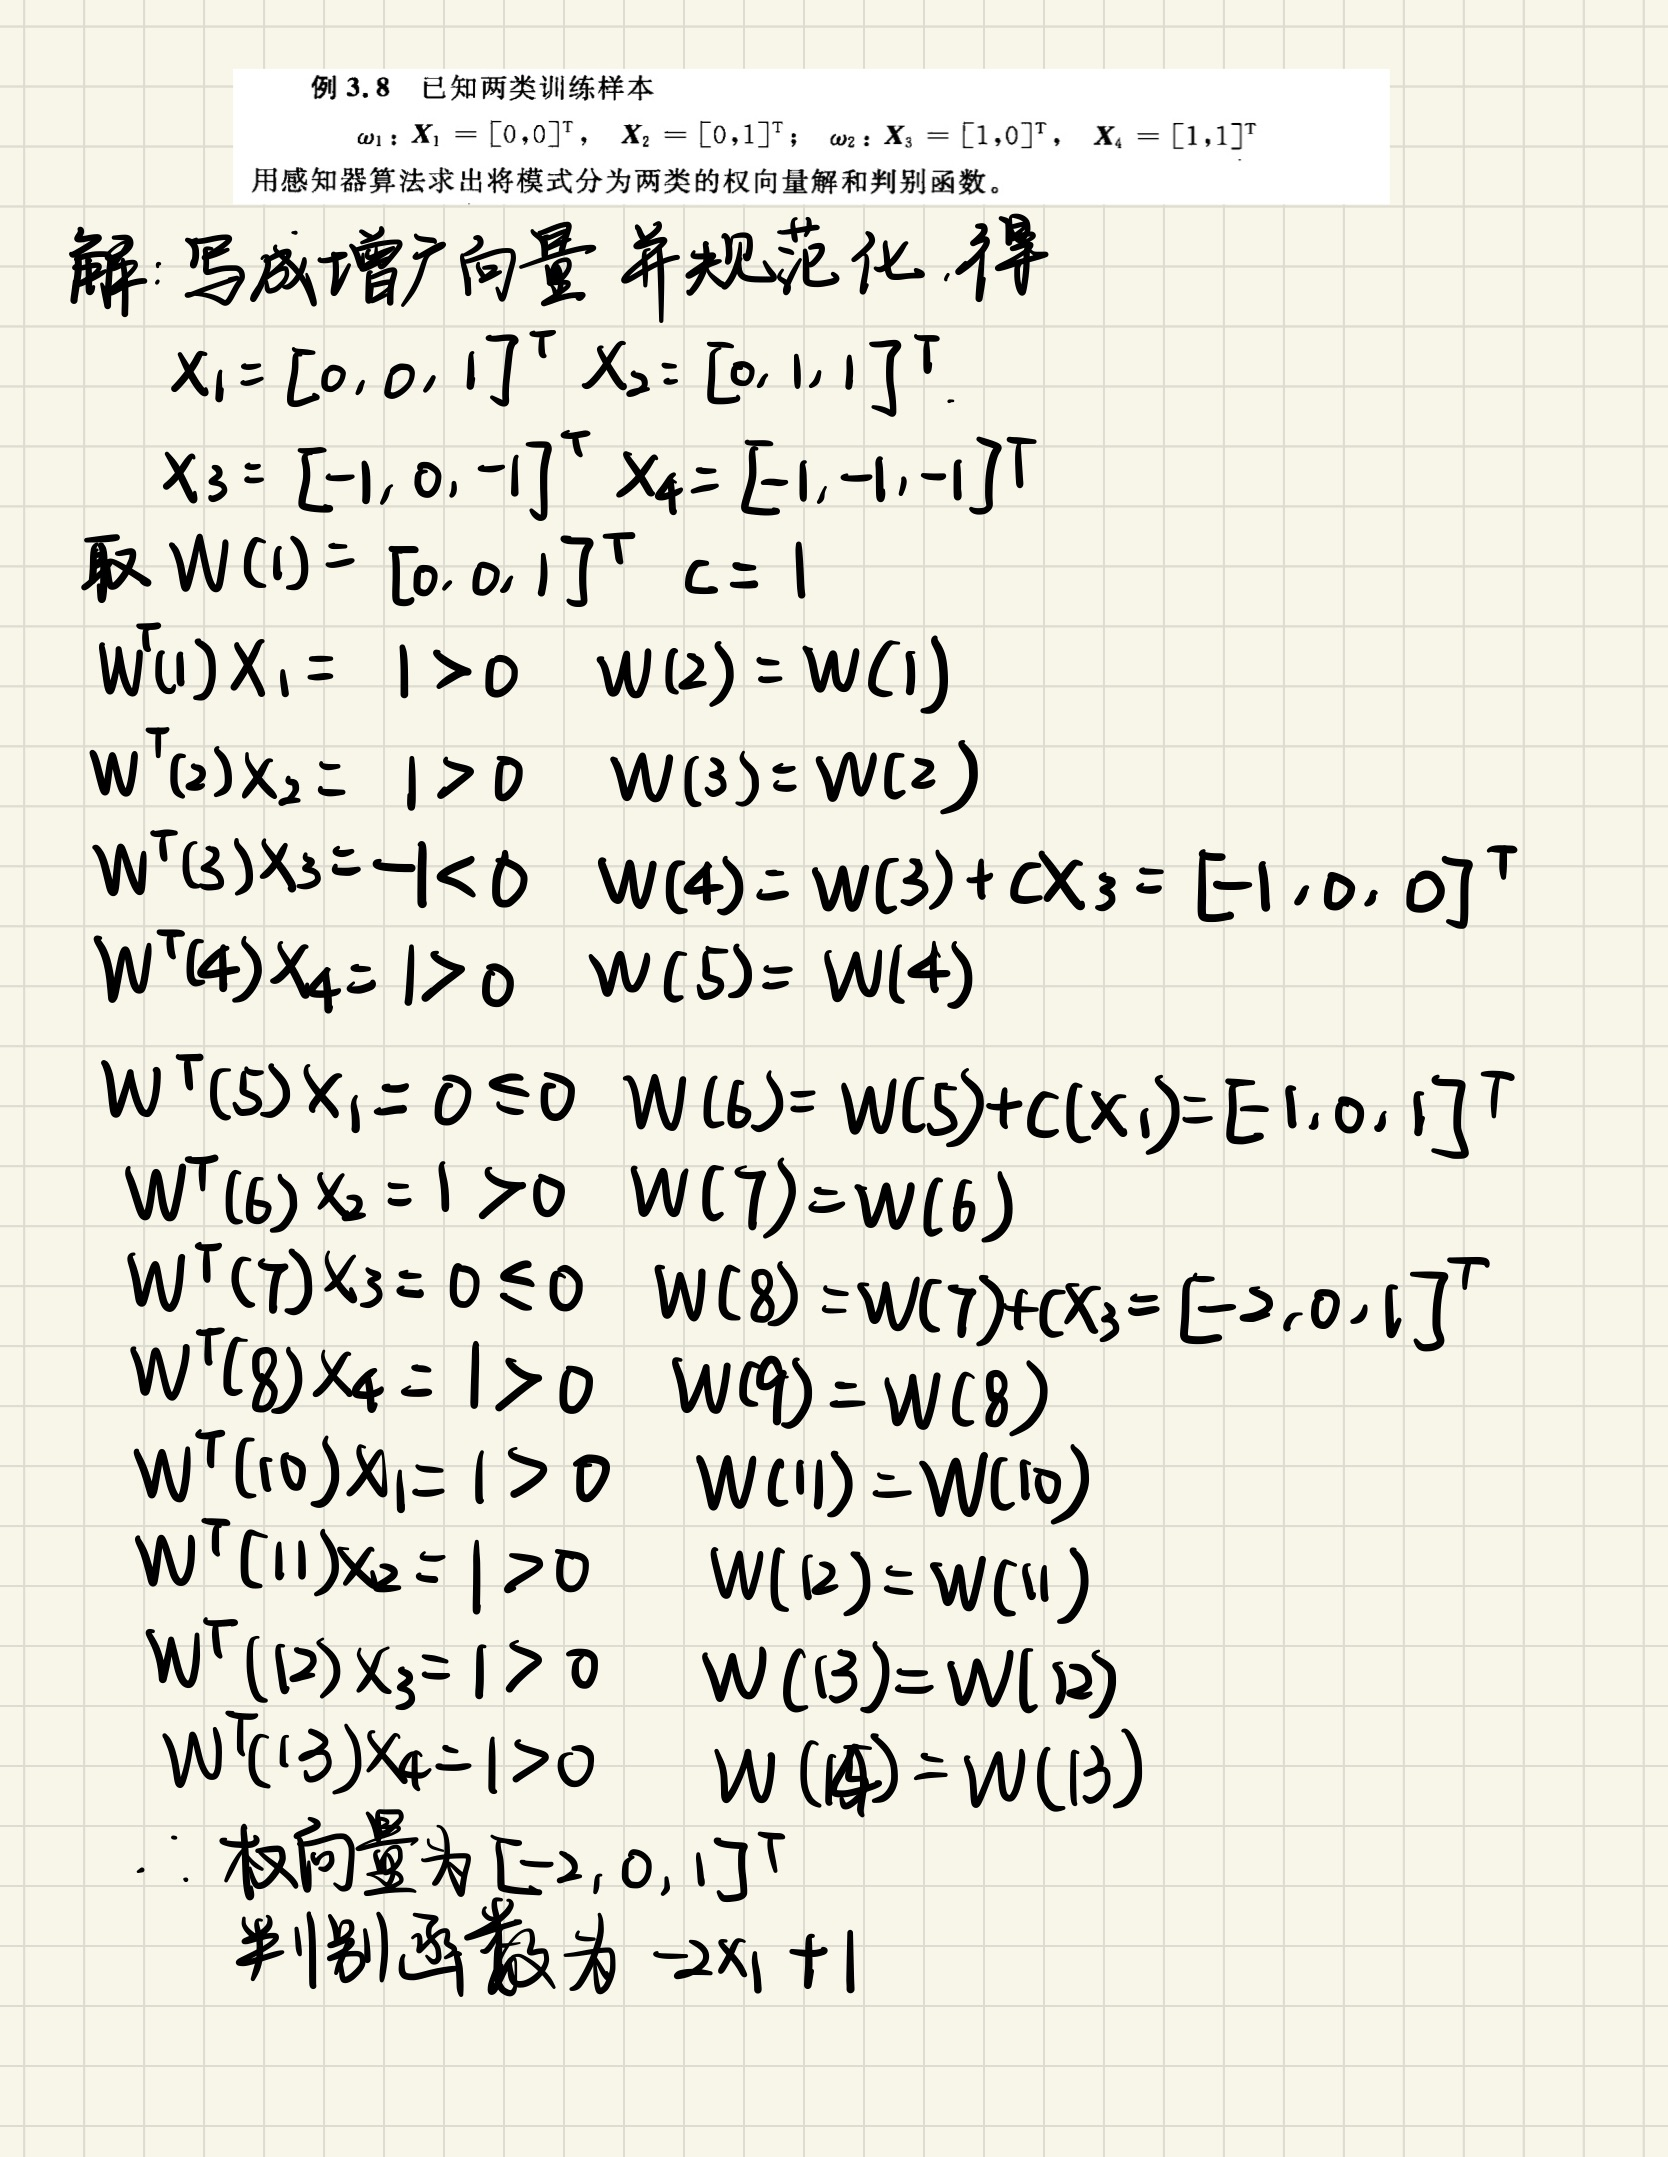 例 3.8 已知两类训练样本
ω₁: X₁ = [0,0]ᵀ, X₂ = [0,1]ᵀ; ω₂: X₃ = [1,0]ᵀ, X₄ = [1,1]ᵀ
用感知器算法求出将模式分为两类的权向量解和判别函数。
解:写成增广向量并规范化,得
X₁ = [0, 0, 1]ᵀ X₂ = [0, 1, 1]ᵀ
X₃ = [-1, 0, -1]ᵀ X₄ = [-1, -1, -1]ᵀ
取 W(1) = [0, 0, 1]ᵀ c = 1
Wᵀ(1)X₁ = 1 > 0 W(2) = W(1)
Wᵀ(2)X₂ = 1 > 0 W(3) = W(2)
Wᵀ(3)X₃ = -1 < 0 W(4) = W(3) + CX₃ = [-1, 0, 0]ᵀ
Wᵀ(4)X₄ = 1 > 0 W(5) = W(4)
Wᵀ(5)X₁ = 0 ≤ 0 W(6) = W(5) + C(X₁) = [-1, 0, 1]ᵀ
Wᵀ(6)X₂ = 1 > 0 W(7) = W(6)
Wᵀ(7)X₃ = 0 ≤ 0 W(8) = W(7) + CX₃ = [-2, 0, 1]ᵀ
Wᵀ(8)X₄ = 1 > 0 W(9) = W(8)
Wᵀ(10)X₁ = 1 > 0 W(11) = W(10)
Wᵀ(11)X₂ = 1 > 0 W(12) = W(11)
Wᵀ(12)X₃ = 1 > 0 W(13) = W(12)
Wᵀ(13)X₄ = 1 > 0 W(14) = W(13)
∴ 权向量为 [-2, 0, 1]ᵀ
判别函数为 -2X₁ + 1